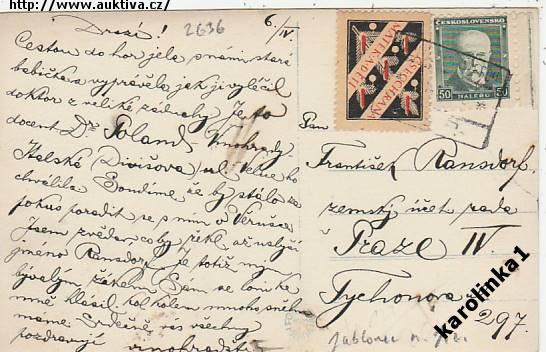 http://www.auktiva.cz/
Drazí!
6./IV.
2636
Cestou do hor jela s námi stará
babička a vyprávěla jak ji vyléčil
doktor z veliké záduchy. Je to
docent Dr. Poland Vinohrady
Italská (Divišova) ul. Velice ho
chválila. Soudíme že by stálo za
pokus poradit se s ním o Verušce
Jsem zvědav, co by řekl, až uslyší
jméno Ransdorf. Je totiž mým
bývalým žákem. Sám se loni ke
mně hlásil. Kol kolem mnoho sněhu
máme. Srdečně vás všechny
pozdravují
OCHRANA
MATEK A DĚTÍ
ČESKOSLOVENSKO
50 HALÉŘŮ 50
Pan
František Ransdorf
zemský účet. rada
v
Praze IV.
Tychonova
297.
Jablonec n. J.
karolinka1